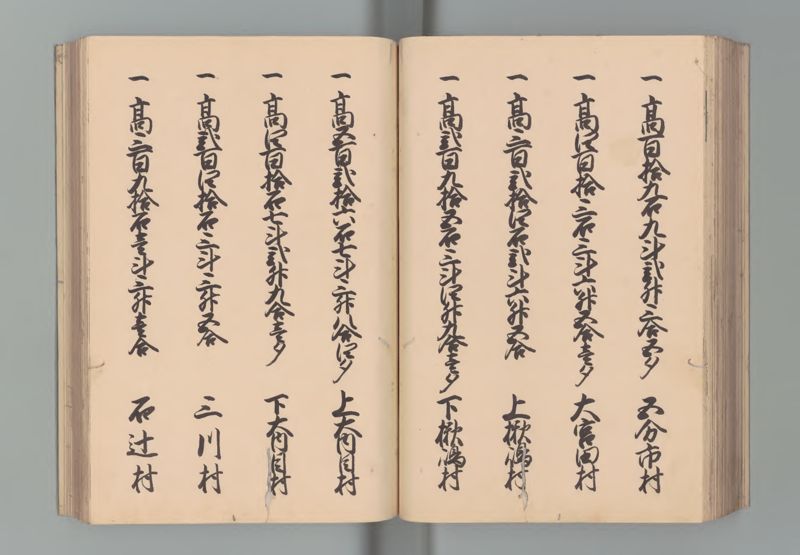 一 高百拾九石九斗弐升三合五夕 五分市村
一 高四百拾三石三斗六升五合壱夕 大宮田村
一 高三百弐拾四石弐斗六升五合 上楸嶋村
一 高弐百九拾五石三斗四升九合壱夕 下楸嶋村
一 高五百弐拾六石七斗三升八合四夕 上大角間村
一 高四百拾石七斗弐升九合壱夕 下大角間村
一 高弐百四拾石三斗三升五合 三川村
一 高三百九拾石壱斗三升壱合 石辻村